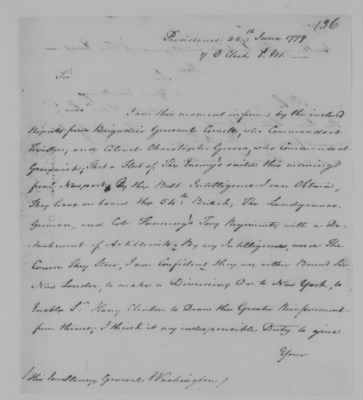 136
Providence 24th June 1779
7 O Clock P.M.
Sir
I am this moment informed by the inclosed
Reports from Brigadier General Cornell, who Commands at
Tiverton, and Colonel Christopher Greene, who Commands at
Greenwich, that a Fleet of the Enemy's sailed this morning
from Newport, By the Best Intelligence I can Obtain,
They have on board the 54th British, the Landgraves
German, and Col Fanning's Tory Regiments, with a De-
tachment of Artillerists. By my Intelligence, and The
Course They Steer, I am Confident they are either Bound for
New London, to make a Diversion Or to New York, to
Enable Sr Harry Clinton to Draw the Greater Reinforcement
from thence; I think it my indispensible Duty to give
Your
(His Excellency General Washington)